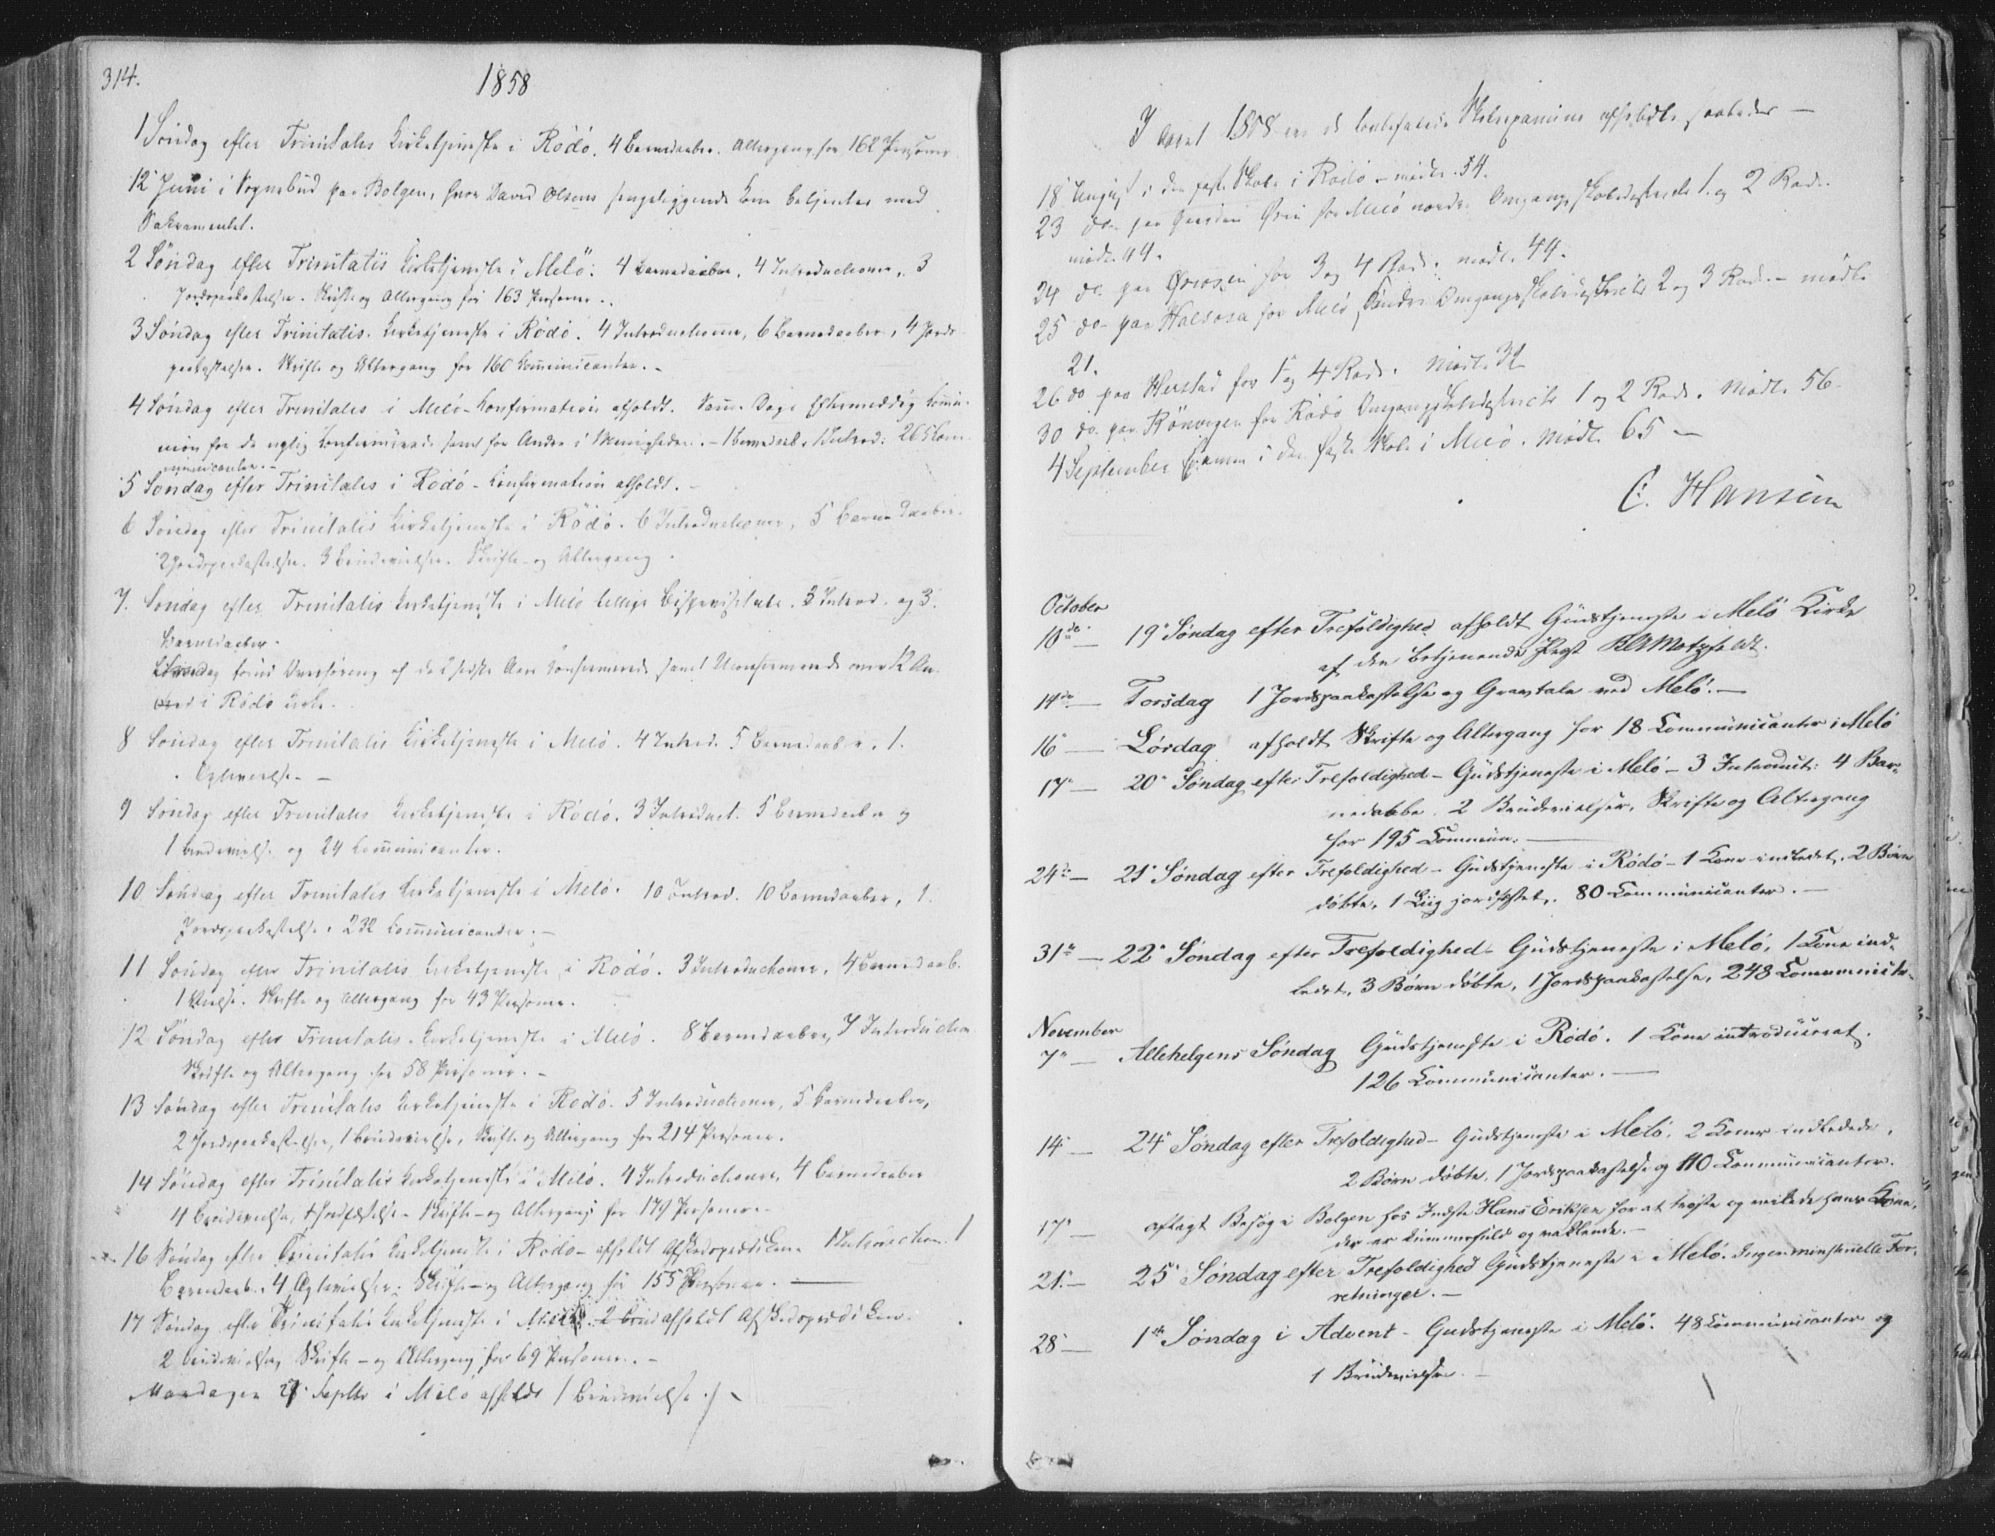 314.
1858
1 Søndag efter Trinitatis Kirketjeneste i Rödö. 4 Barnedaaber. Altergang for 162 Personer
12 Juni i Sognebud paa Bolgen, hvor David Olsens sengeliggende Kone betjentes med
Sakramentet.
2 Søndag efter Trinitatis Kirketjeneste i Melö. 4 Barnedaaber, 4 Introductioner, 3
Jordspaakastelser. Skrifte og Altergang for 163 Personer.
3 Søndag efter Trinitatis. Kirketjeneste i Rödö. 4 Introductioner, 6 Barnedaaber, 4 Jords-
paakastelser. Skrifte og Altergang for 160 Communicanter. -
4 Søndag efter Trinitatis i Melö - Confirmation afholdt. Samme Dags Eftermiddag Commu-
nion for de nylig Confirmerede samt for Andre i Menigheden. - 1 Barnedaab. 1 Introd: 265 Com-
municanter. -
5 Søndag efter Trinitatis i Rödö - Confirmation afholdt. -
6 Søndag efter Trinitatis Kirketjeneste i Rödö. 6 Introductioner, 5 Barnedaaber.
2 Jordspaakastelser. 3 Brudevielser. Skrifte - og Altergang.
7. Søndag efter Trinitatis Kirketjeneste i Melö tillige Bispevisitats. 3 Introd. og 3.
Barnedaaber.
af de 2 sidste Aars Confirmerede samt Uconfirmerede over 12 Aar
i Rödö Kirke.
8 Søndag efter Trinitatis Kirketjeneste i Melö. 4 Introd. 5 Barnedaaber. 1.
Ægtevielse. -
9 Søndag efter Trinitatis Kirketjeneste i Rödö. 3 Introduct. 5 Barnedaaber og
1 Brudevielse og 24 Communicanter.
10 Søndag efter Trinitatis Kirketjeneste i Melö. 10 Introd. 10 Barnedaaber, 1.
Jordspaakastelse. 232 Communicanter. -
11 Søndag efter Trinitatis Kirketjeneste i Rödö. 3 Introductioner, 4 Barnedaab.
1 Vielse. Skrifte og Altergang for 43 Personer.
12 Søndag efter Trinitatis. Kirketjeneste i Melö. 8 Barnedaaber, 7 Introduction
Skrifte og Altergang for 58 Personer. -
13 Søndag efter Trinitatis Kirketjeneste i Rödö. 5 Introductioner, 5 Barnedaaber,
2 Jordspaakastelser, 1 Brudevielse, Skrifte og Altergang for 214 Personer.
14 Søndag efter Trinitatis Kirketjeneste i Melö. 4 Introductioner, 4 Barnedaaber
4 Brudevielser, 1 Jordfæstelse - Skrifte - og Altergang for 179 Personer. -
16 Søndag efter Trinitatis Kirketjeneste i Rödö - afholdt Afskedsprædiken 1 Introduction. 1
Barnedaab. 4 Ægtevielser. Skrifte - og Altergang for 155 Personer. -
17 Søndag efter Trinitatis Kirketjeneste i Melö. 2 Brud afholdt Afskedsprædiken.
2 Brudevielser, Skrifte - og Altergang for 69 Personer. -
Mandagen Septbr i Melö afholdt 1 Brudevielse. -
I Aaret 1858 ere de Skoleexamina afholdte saaledes -
18 August i den faste Skole i Rödö - mødte 54.
23 do paa Gaarden Ørn for Melö nordre Omgangsskoledistricts 1. og 2 Rode.
mødte 44.
24 do. paa for 3 og 4 Rode. mødte 49.
25 do paa Halsosa for Melö Søndre Omgangsskoledistricts 2 og 3 Rode. - mødte
21.
26 do paa Herstad for 1 og 4 Rode. Mødte 32
30 do. paa Rönvigen for Rödö Omgangsskoledistricts 1 og 2 Rode. Mødte 56.
4 September Examen i den faste Skole i Melö. Mødte 65 -
C. Hansen
October
10de. - 19de Søndag efter Trefoldighed afholdt Gudstjeneste i Melö Kirke
af den betjenende Præst Motzfeldt.
14de - Torsdag 1 Jordspaakastelse og Gravtale ved Melö. -
16 - Lördag afholdt Skrifte og Altergang for 18 Communicanter i Melö
17 - 20 Søndag efter Trefoldighed - Gudstjeneste i Melö - 3 Introduct: 4 Bar-
nedaabe. 2 Brudevielser, Skrifte og Altergang
for 195 Commun. -
24de - 21 Søndag efter Trefoldighed - Gudstjeneste i Rödö - 1 Kone indledet, 2 Børn
døbte, 1 Liig jordfæstet. 80 Communicanter. -
31te - 22 Søndag efter Trefoldighed - Gudstjeneste i Melö, 1 Kone ind-
ledet, 3 Børn døbte, 1 Jordspaakastelse, 248 Communicter.
November
7 - Allehelgens Søndag Gudstjeneste i Rödö. 1 Kone introduceret.
126 Communicanter. -
14 - 24 Søndag efter Trefoldighed - Gudstjeneste i Melö, 2 Koner indledede,
2 Børn døbte, 1 Jordspaakastelse og 110 Communicanter.
17 - aflagt Besøg i Bolgen hos Inderste Hans Eriksen for at trøste og veilede hans Kone,
der er kummerfuld og vaklende. -
21. - 25 Søndag efter Trefoldighed Gudstjeneste i Melö. Ingen ministerielle For-
retninger. -
28 - 1ste Søndag i Advent - Gudstjeneste i Melö. 48 Communicanter og
1 Brudevielse. -